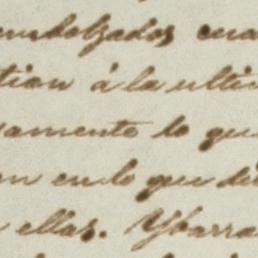 embolzados cua
tion á la ultim
samente lo que
en en lo que di
ellas. Ybarra